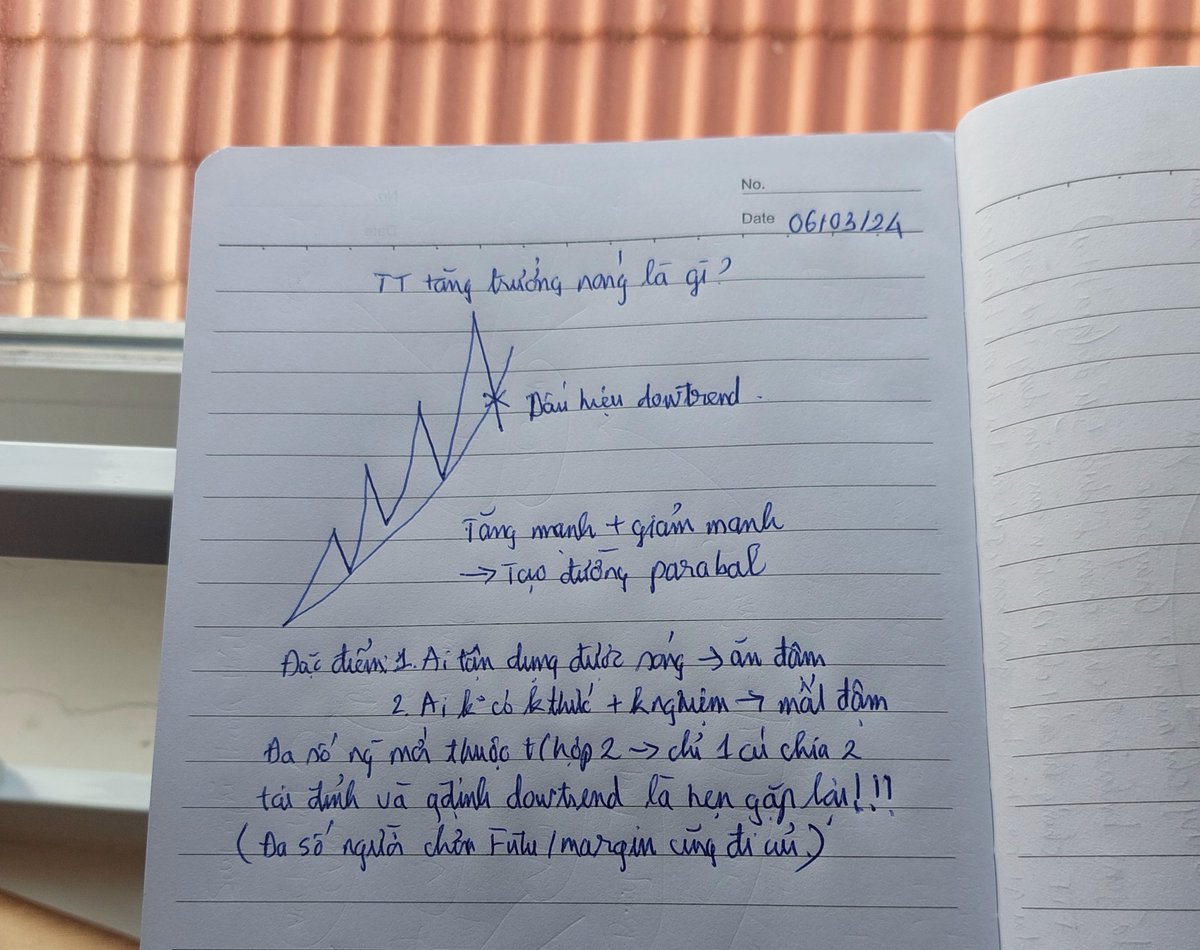 No.
Date 06/03/24
TT tăng trưởng nóng là gì?
Dấu hiệu dowtrend.
Tăng mạnh + giảm mạnh
→ Tạo đường parabal
Đặc điểm: 1. Ai tận dụng được sóng → ăn đậm
2. Ai k có kthức + knghiệm → mất đậm
Đa số ng mới thuộc t/hợp 2 → chỉ 1 cú chia 2
tại đỉnh và qđịnh dowtrend là hẹn gặp lại!!!
(Đa số người chơi Futu/margin cũng đi cư)